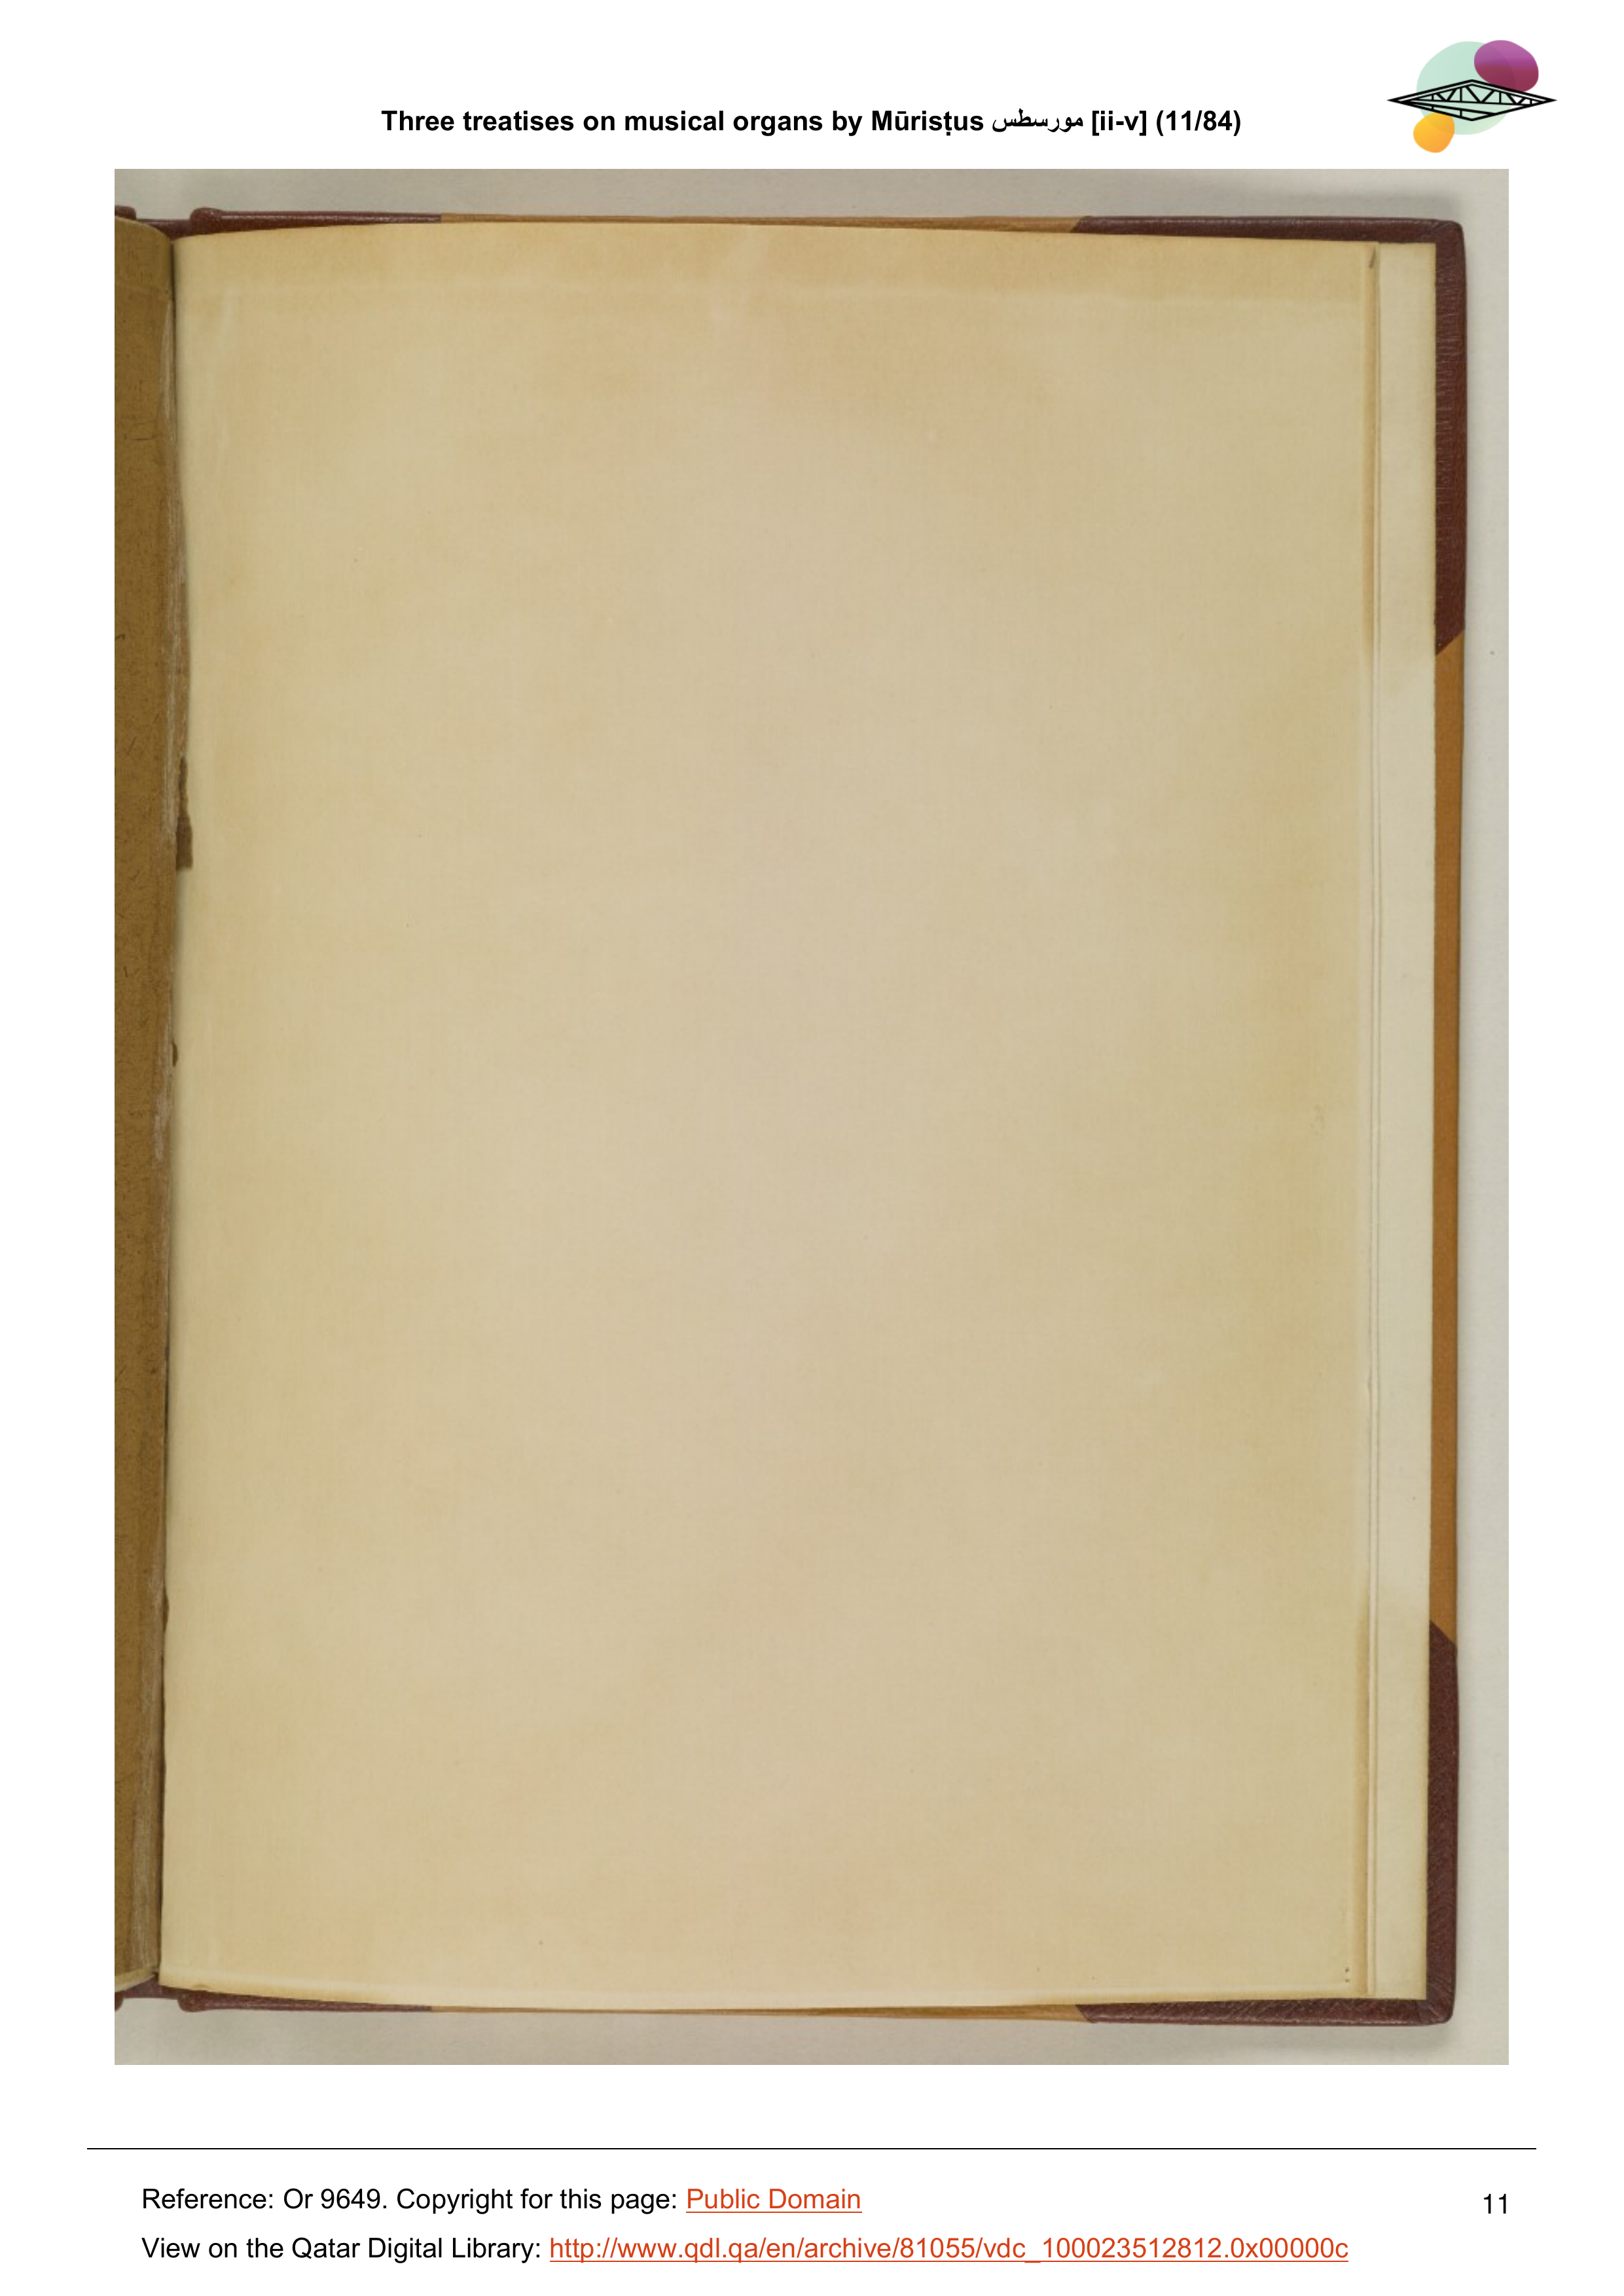 Three treatises on musical organs by Mūrisṭus مورسطس [ii-v] (11/84)
Reference: Or 9649. Copyright for this page: Public Domain
11
View on the Qatar Digital Library: http://www.qdl.qa/en/archive/81055/vdc_100023512812.0x00000c